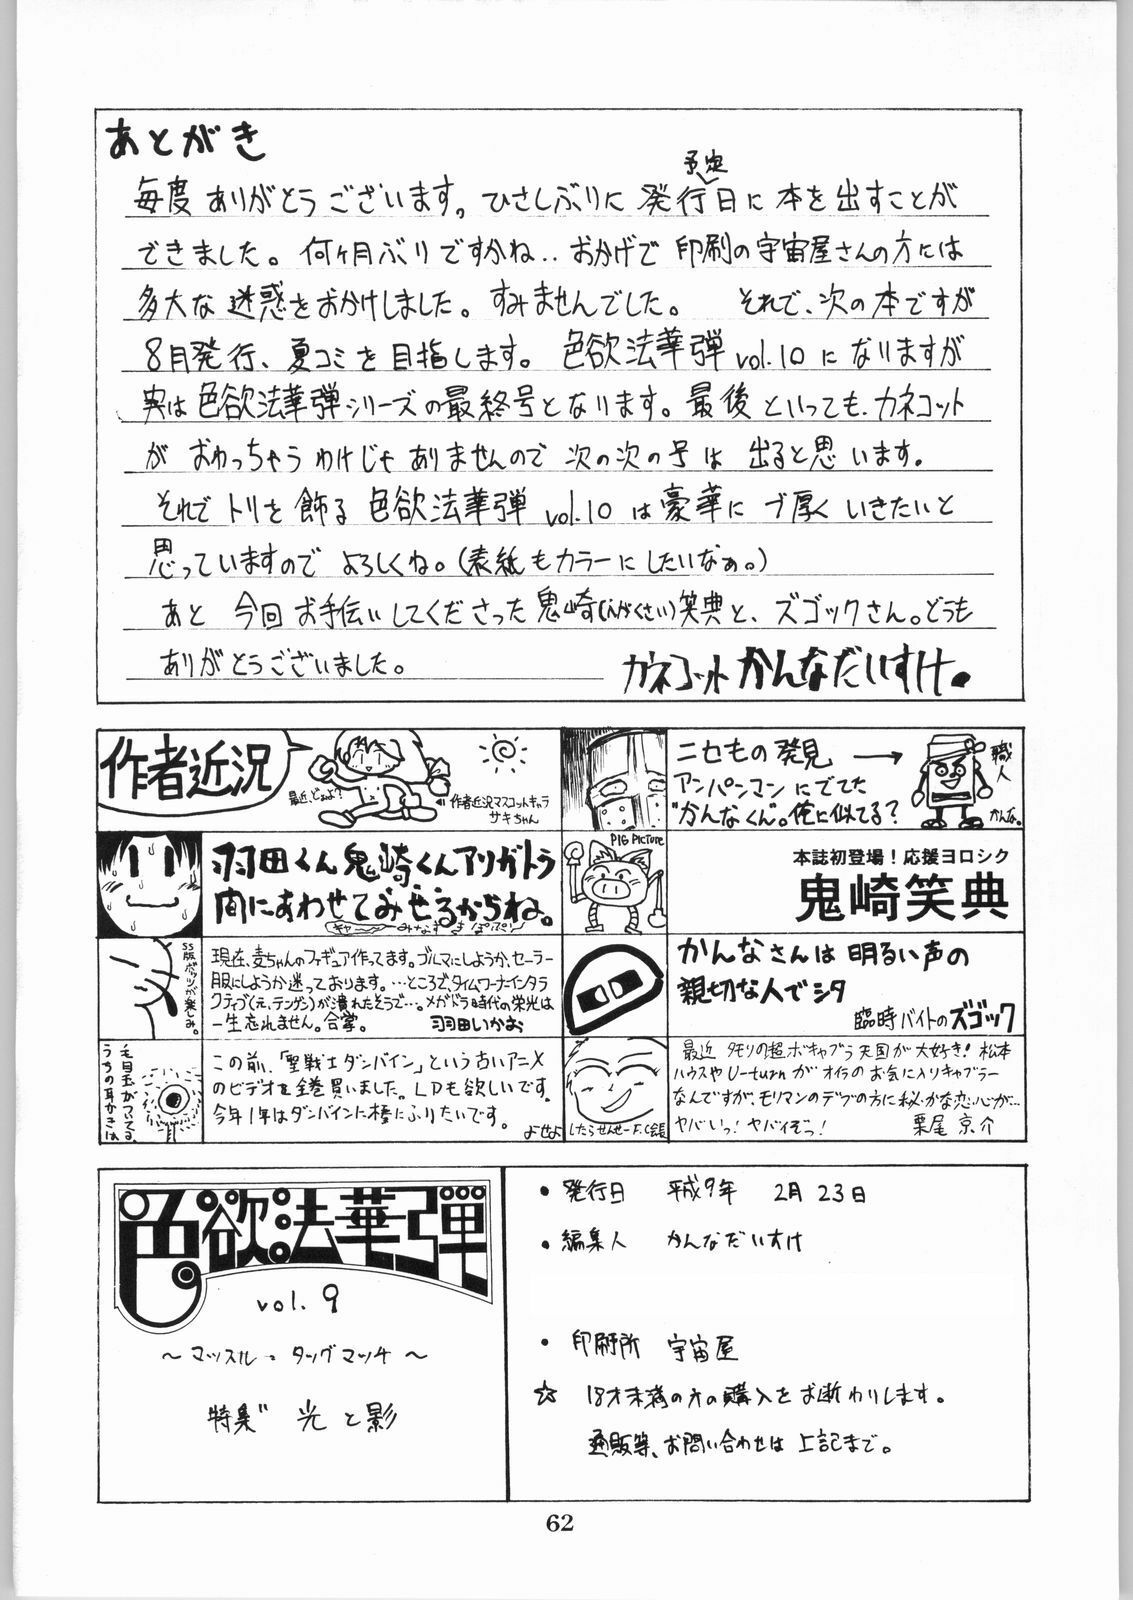 あとがき
毎度ありがとうございます。ひさしぶりに発行予定日に本を出すことが
できました。何ヶ月ぶりですかね‥おかげで印刷の宇宙屋さんの方には
多大な迷惑をおかけしました。すみませんでした。 それで、次の本ですが
8月発行、夏コミを目指します。色欲法華弾vol.10になりますが
実は色欲法華弾シリーズの最終号となります。最後といっても、カネコット
がおわっちゃうわけじゃありませんので次の次の号は出ると思います。
それでトリを飾る色欲法華弾vol.10は豪華にブ厚くいきたいと
思っていますのでよろしくね。(表紙もカラーにしたいなぁ。)
あと今回お手伝いしてくださった鬼崎(えがくさい)笑典と、ズゴックさん。どうも
ありがとうございました。
カネコット かんなだいすけ。
作者近況
最近、どぉよ?
作者近況マスコットキャラ
サキちゃん
ニセもの発見 →
アンパンマンにでてた
"かんなくん"。俺に似てる?
職人
かんな。
羽田くん鬼崎くんアリガトう
間にあわせてみせるからね。
PIG PICTURE
本誌初登場!応援ヨロシク
鬼崎笑典
SS版ポリッツが楽しみ。
現在、麦ちゃんのフィギュア作ってます。ブルマにしようか、セーラー
服にしようか迷っております。…ところで、タイムワーナーインタラ
クティブ(え、テンゲン)が潰れたそうで…。メガドラ時代の栄光は
一生忘れません。合掌。 羽田いかお
かんなさんは明るい声の
親切な人でシタ
臨時バイトのズゴック
毛目玉がついてる
うちの耳かきは
この前、「聖戦士ダンバイン」という古いアニメ
のビデオを全巻買いました。LDも欲しいです。
今年1年はダンバインに棒にふりたいです。
よせよ
したらせんせーF.C会長
最近 タモリの超ボキャブラ天国が大好き! 松本
ハウスやU-turnがオイラのお気に入りキャブラー
なんですが、モリマンのデブの方に秘かな恋心が…
ヤバいっ!ヤバイぞっ! 栗尾 京介
色欲法華弾
vol.9
～マッスル・タッグマッチ～
特集 光と影
・発行日 平成9年 2月23日
・編集人 かんなだいすけ
・印刷所 宇宙屋
☆ 18才未満の方の購入をお断わりします。
通販等、お問い合わせは上記まで。
62